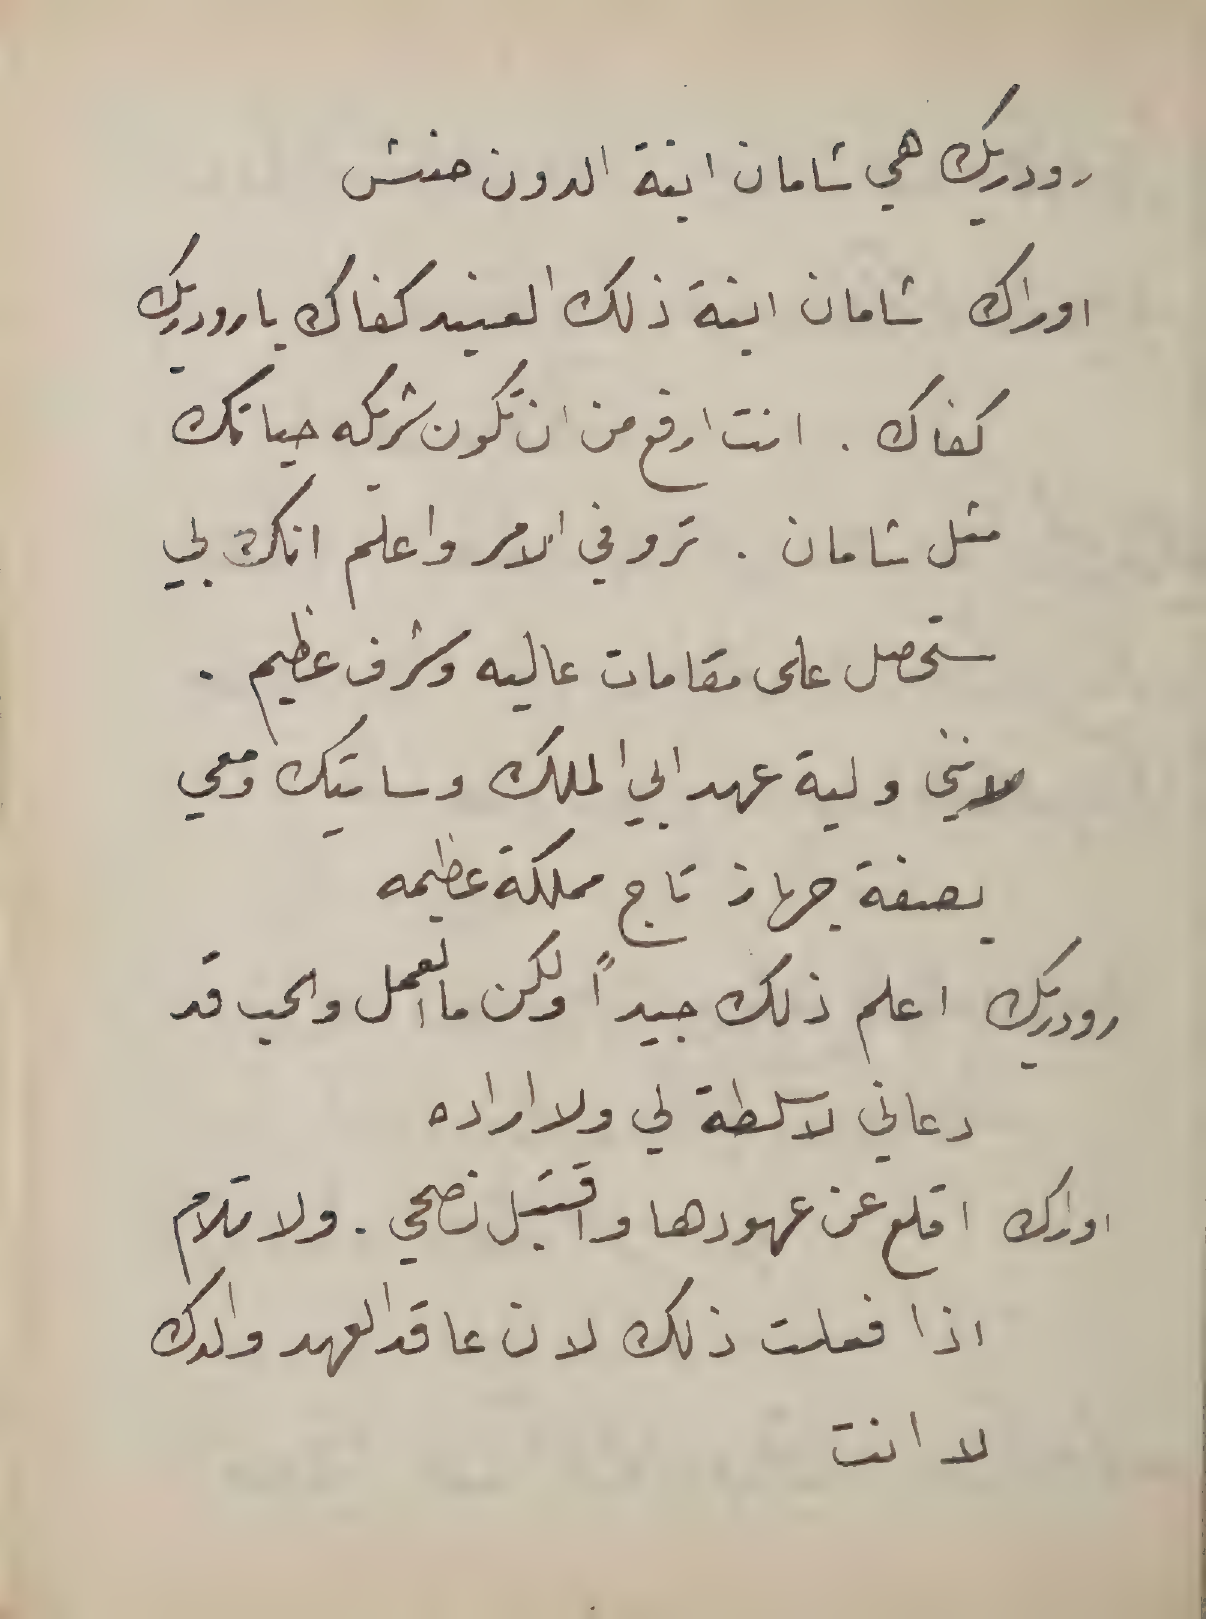 رودريك هي شامان ابنة الدون حنتش
اوراك شامان ابنة ذلك العنيد كفاك يا رودريك
كفاك . انت ارفع من ان تكون شريكه حياتك
مثل شامان . ترو في الامر واعلم انك بي
ستحصل على مقامات عاليه وشرف عظيم .
لانني ولية عهد ابي الملك وساتيك ومعي
بصفة جهاز تاج مملكة عظيمه
رودريك اعلم ذلك جيداً ولكن ما العمل والحب قد
دعاني لا سلطة لي ولا اراده
اوراك اقلع عن عهودها واقتبل نصحي . ولا تلام
اذا فعلت ذلك لان عاقد العهد والدك
لا انت